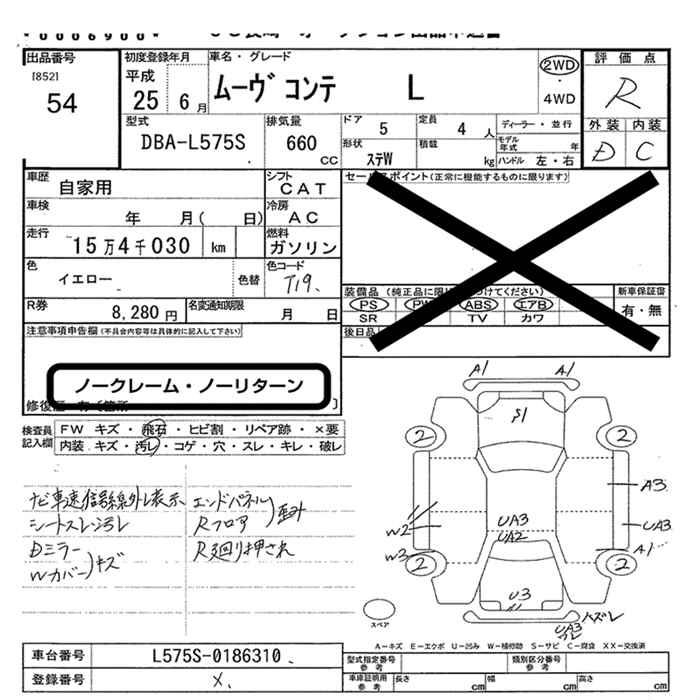 0006900
出品番号
[852]
54
初度登録年月
平成
25 6月
車名・グレード
ムーヴ コンテ L
2WD
・
4WD
評価点
R
外装 内装
D C
型式
DBA-L575S
排気量
660
CC
ドア 5
定員 4 人
ディーラー・並行
モデル年式 年
形状 ステW
積載 kg
ハンドル 左・右
車歴
自家用
シフト
CAT
セールスポイント(正常に機能するものに限ります)
車検
年 月( 日)
冷房
AC
走行
15万4千030 km
燃料
ガソリン
色
イエロー
色替
色コード
T19
R券
8,280円
名変通知期限
月 日
装備品(純正品に限り○をつけてください)
PS PW ABS エアB
SR TV カワ
新車保証書
有・無
後日品
注意事項申告欄(不具合内容等は具体的に記入して下さい)
ノークレーム・ノーリターン
修復歴 有〔箇所 〕
検査員記入欄
FW キズ・飛石・ヒビ割・リペア跡・×要
内装 キズ・汚レ・コゲ・穴・スレ・キレ・破レ
ナビ車速信号線外し表示
シートスレ汚レ
Dミラー
Wカバー)キズ
エンドパネル
Rフロア)歪み
R廻り押され
A1 A1
S1
2 2
A3
UA3
W2
UA3
UA2
W3
A1
2 2
U3
ハズレ
UA3
スペア
A－キズ E－エクボ U－凹み W－補修跡 S－サビ C－腐食 XX－交換済
車台番号
L575S-0186310
登録番号
×
型式指定番号
参考
類別区分番号
参考
車庫証明用
参考
長さ cm
幅 cm
高さ cm